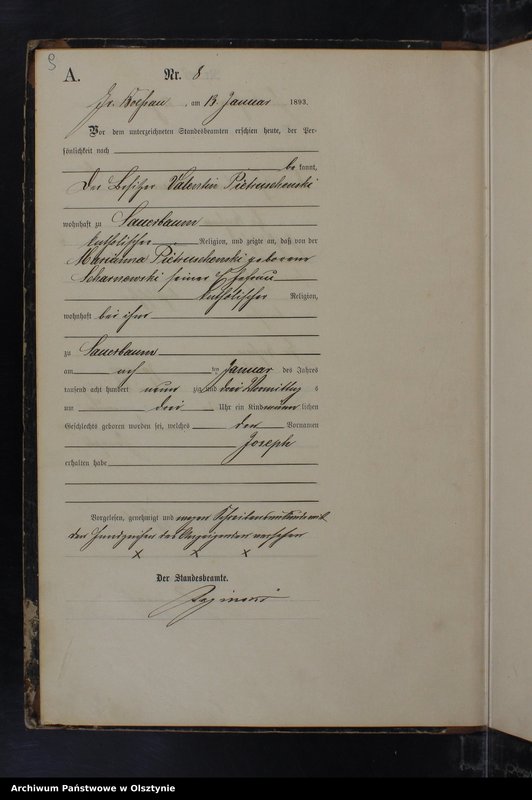 A.
Nr. 8
am 13. Januar 1893.
Vor dem unterzeichneten Standesbeamten erschien heute, der Per-
sönlichkeit nach
be kannt,
Der Besitzer Valentin Pietruschenski
wohnhaft zu Sauerbaum
katholischer Religion, und zeigte an, daß von der
Marianna Pietruschenski geborene
Scharnewski seiner Ehefrau
katholischer Religion,
wohnhaft bei ihm
zu Sauerbaum
am ten Januar des Jahres
tausend acht hundert neun zig und drei Vormittags
um drei Uhr ein Kind männ lichen
Geschlechts geboren worden sei, welches den Vornamen
Joseph
erhalten habe
Vorgelesen, genehmigt und wegen Schreibensunkunde mit
den Handzeichen des Anzeigenden versehen
x x x
Der Standesbeamte.
Archiwum Państwowe w Olsztynie